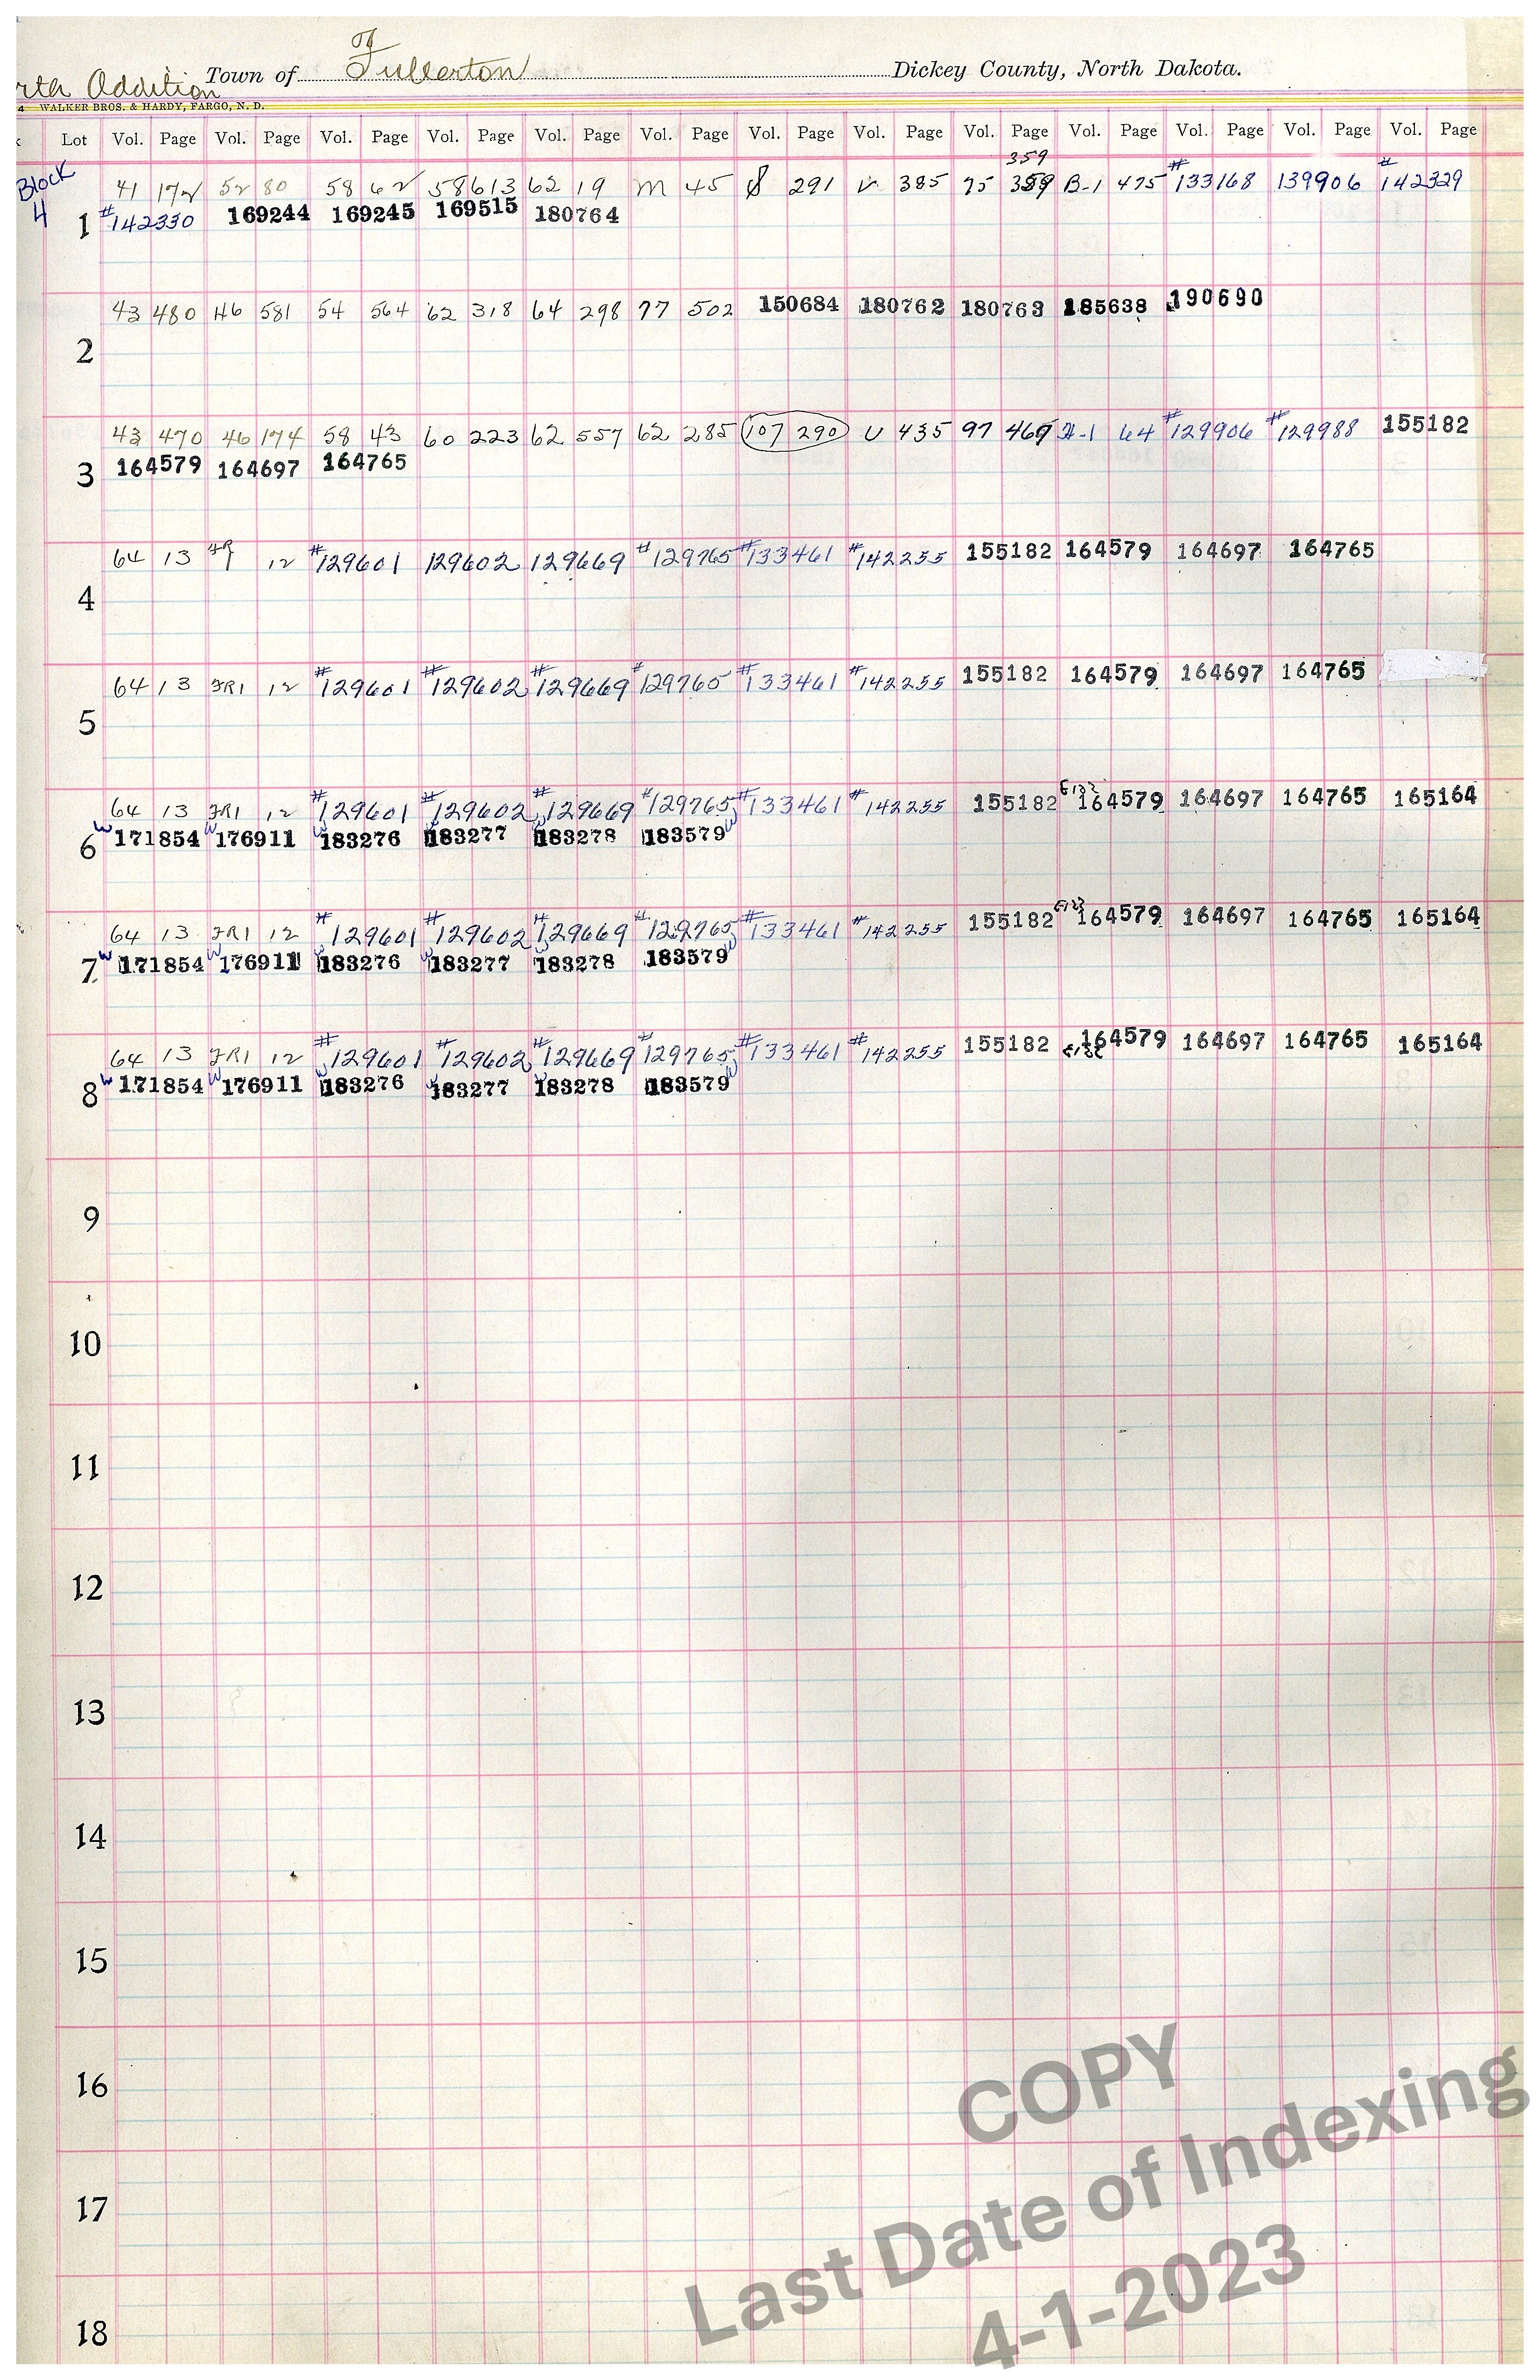 Of
rth Addition Town of Fullerton Dickey County, North Dakota.
4 WALKER BROS. & HARDY, FARGO, N. D.
Lot Vol. Page Vol. Page Vol. Page Vol. Page Vol. Page Vol. Page Vol. Page Vol. Page Vol. Page Vol. Page Vol. Page Vol. Page Vol. Page
359
Block 41 172 52 80 58 62 58 613 62 19 M 45 291 V 385 75 359 B-1 475 #133168 139906 #142329
4 1 #142330 169244 169245 169515 180764
43 480 46 581 54 564 62 318 64 298 77 502 150684 180762 180763 185638 190690
2
43 470 46 174 58 43 60 223 62 557 62 285 107 290 U 435 97 469 H-1 64 #129906 #129988 155182
3 164579 164697 164765
64 13 12 #129601 129602 129669 #129765 #133461 #142255 155182 164579 164697 164765
4
64 13 FR1 12 #129601 #129602 #129669 #129765 #133461 #142255 155182 164579 164697 164765
5
64 13 FR1 12 #129601 #129602 #129669 #129765 #133461 #142255 155182 164579 164697 164765 165164
6 W 171854 W 176911 W 183276 W 183277 W 183278 183579 W
64 13 FR1 12 #129601 #129602 #129669 #129765 #133461 #142255 155182 164579 164697 164765 165164
7 W 171854 W 176911 W 183276 W 183277 W 183278 183579 W
64 13 FR1 12 #129601 #129602 #129669 #129765 #133461 #142255 155182 164579 164697 164765 165164
8 W 171854 W 176911 W 183276 W 183277 W 183278 183579 W
9
10
11
12
13
14
15
16
17
18
COPY
Last Date of Indexing
4-1-2023